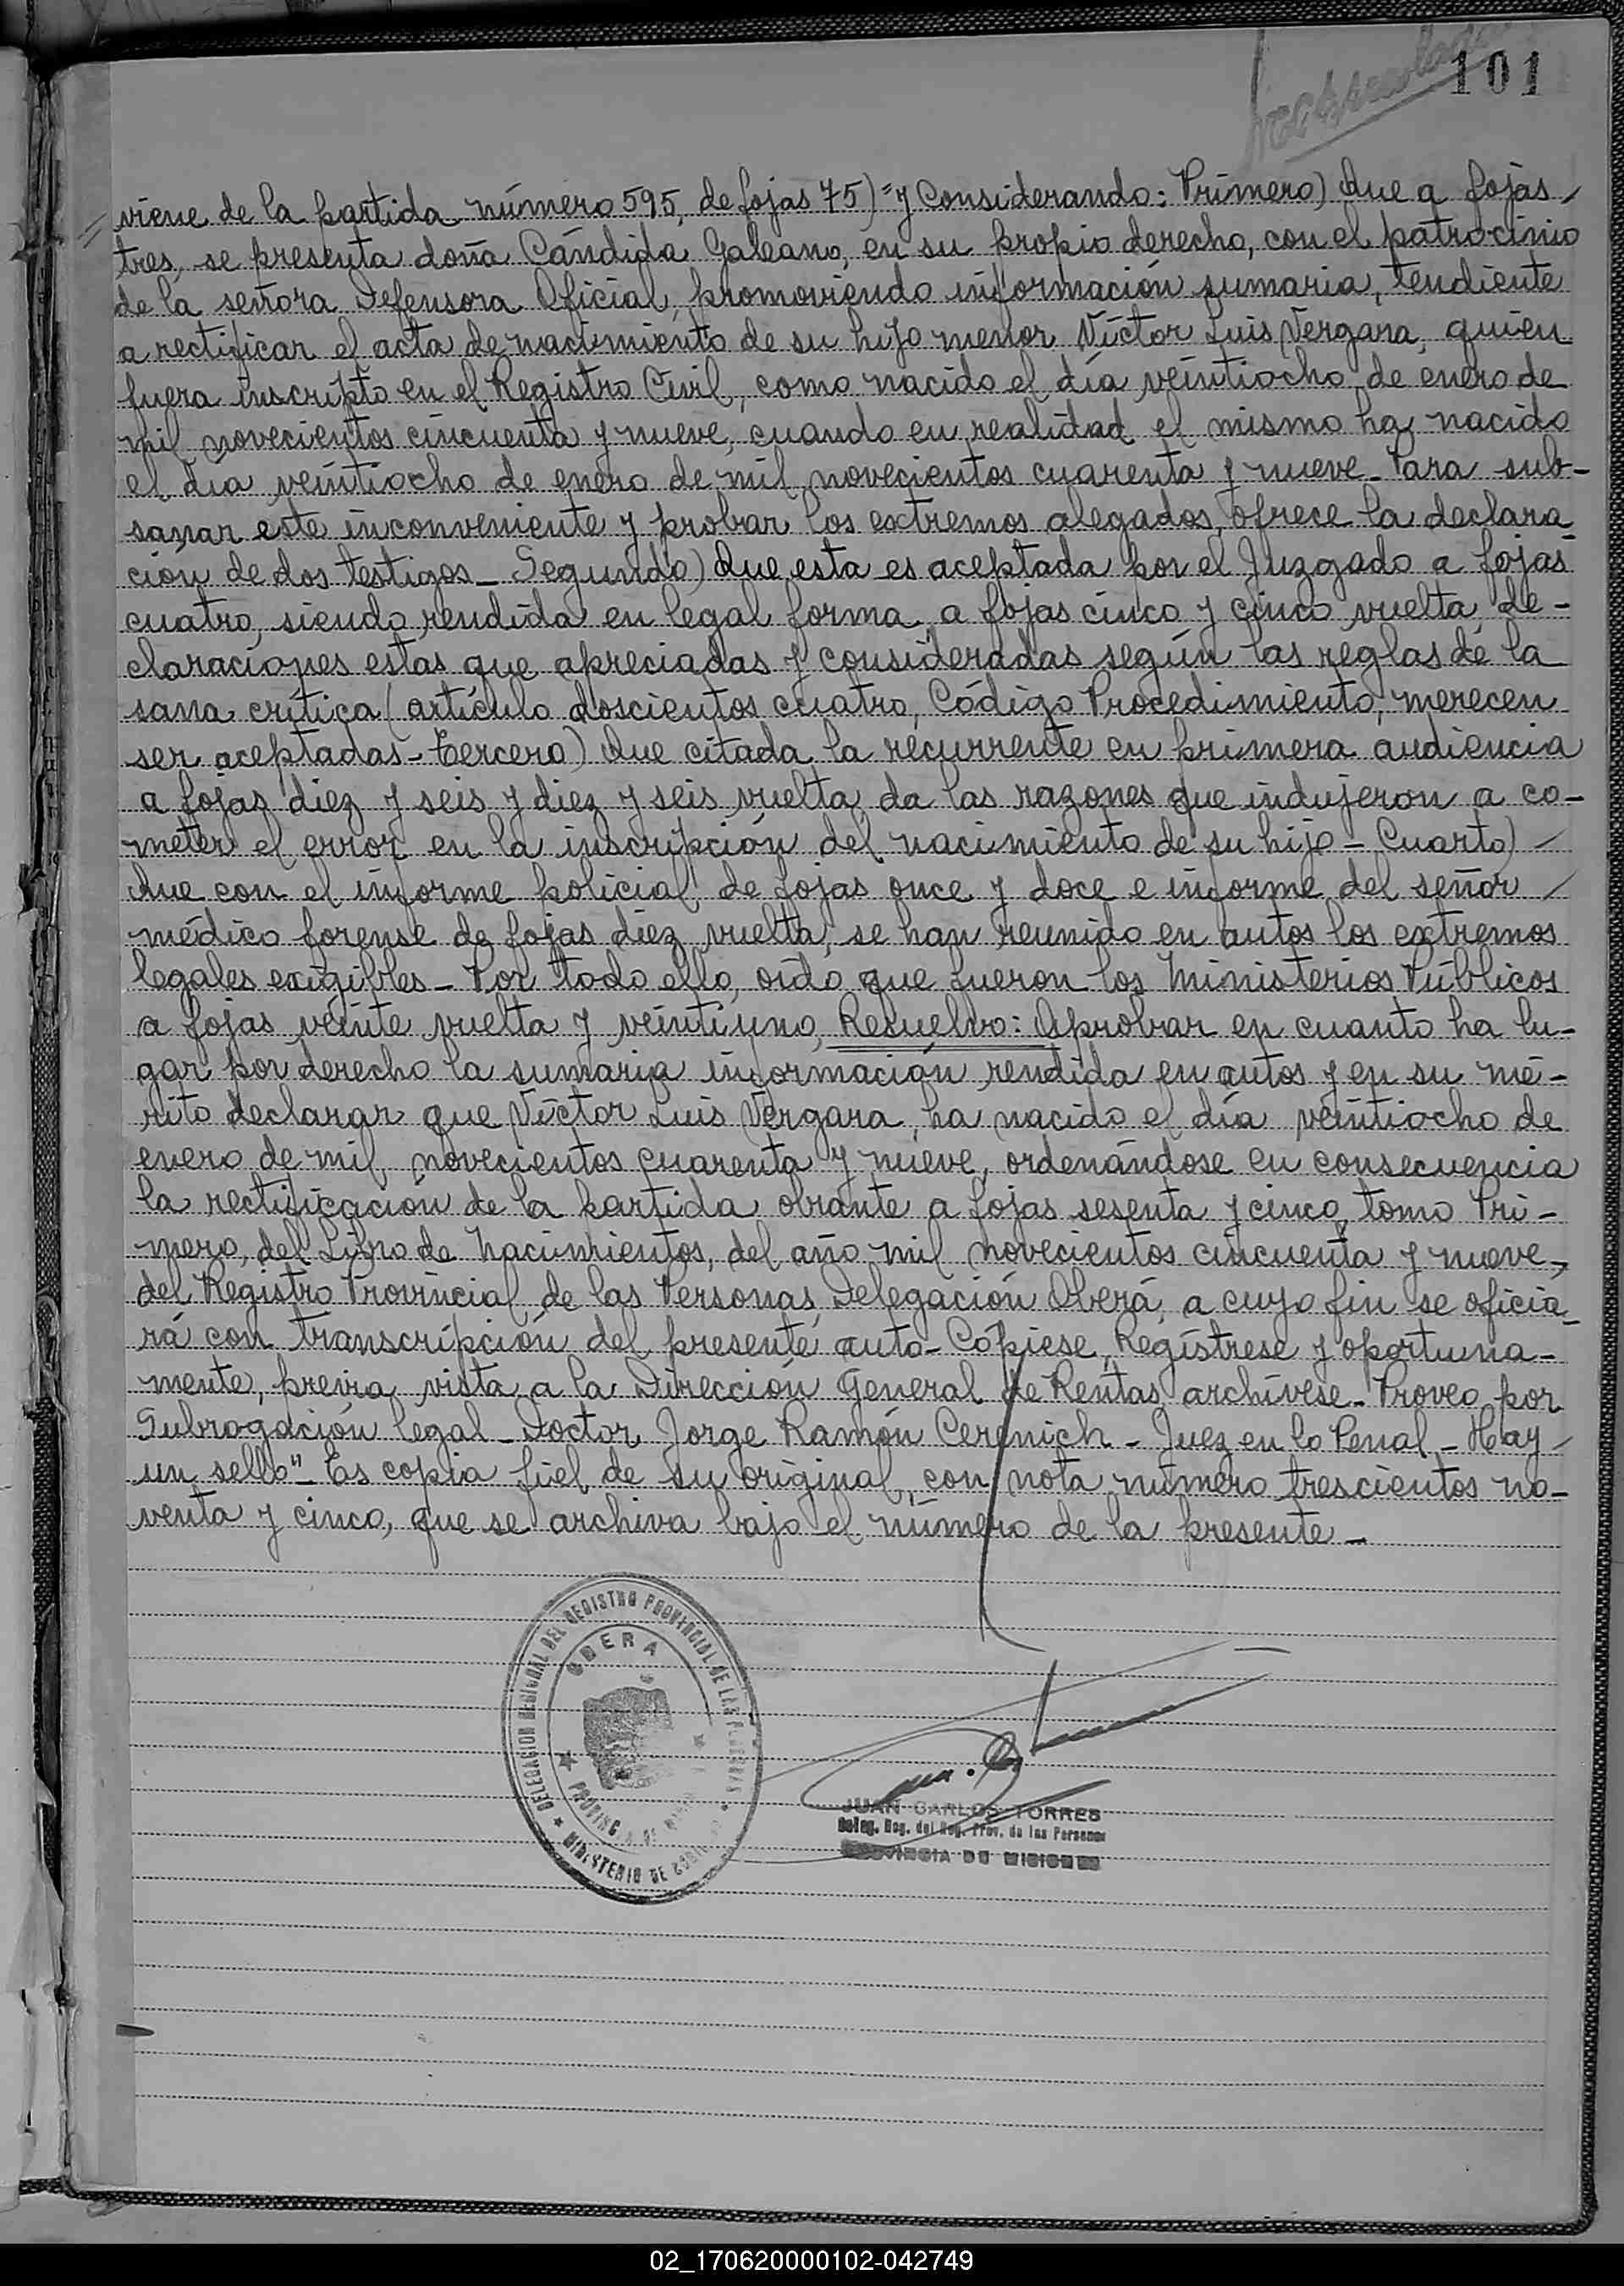 101
viene de la partida número 595, de fojas 75)" y Considerando: Primero) Que a fojas
tres, se presenta doña Cándida Galeano, en su propio derecho, con el patrocinio
de la señora Defensora Oficial, promoviendo información sumaria, tendiente
a rectificar el acta de nacimiento de su hijo menor Víctor Luis Vergara, quien
fuera inscripto en el Registro Civil, como nacido el día veintiocho de enero de
mil novecientos cincuenta y nueve, cuando en realidad el mismo ha nacido
el día veintiocho de enero de mil novecientos cuarenta y nueve- Para sub-
sanar este inconveniente y probar los extremos alegados, ofrece la declara-
ción de dos testigos- Segundo) Que esta es aceptada por el Juzgado a fojas
cuatro, siendo rendida en legal forma a fojas cinco y cinco vuelta, de-
claraciones estas que apreciadas y consideradas según las reglas de la
sana crítica (artículo doscientos cuatro, Código Procedimiento, merecen
ser aceptadas- Tercero) Que citada la recurrente en primera audiencia
a fojas diez y seis y diez y seis vuelta da las razones que indujeron a co-
meter el error en la inscripción del nacimiento de su hijo- Cuarto)
Que con el informe policial de fojas once y doce e informe del señor
médico forense de fojas diez vuelta, se han reunido en autos los extremos
legales exigibles- Por todo ello, oído que fueron los Ministerios Públicos
a fojas veinte vuelta y veintiuno, Resuelvo: Aprobar en cuanto ha lu-
gar por derecho la sumaria información rendida en autos y en su mé-
rito declarar que Víctor Luis Vergara, ha nacido el día veintiocho de
enero de mil novecientos cuarenta y nueve, ordenándose en consecuencia
la rectificación de la partida obrante a fojas sesenta y cinco, tomo Pri-
mero, del Libro de Nacimientos, del año mil novecientos cincuenta y nueve,
del Registro Provincial de las Personas, Delegación Oberá, a cuyo fin se oficia-
rá con transcripción del presente auto- Cópiese, Regístrese y oportuna-
mente, previa vista a la Dirección General de Rentas, archívese- Proveo por
Subrogación legal- Doctor Jorge Ramón Cerenich- Juez en lo Penal- Hay
un sello"- Es copia fiel de su original, con nota número trescientos no-
venta y cinco, que se archiva bajo el número de la presente-
DELEGACION REGIONAL DEL REGISTRO PROVINCIAL DE LAS PERSONAS
OBERA
PROVINCIA DE
MINISTERIO DE
JUAN CARLOS TORRES
Deleg. Reg. del Reg. Prov. de las Personas
PROVINCIA DE MISIONES
02_170620000102-042749